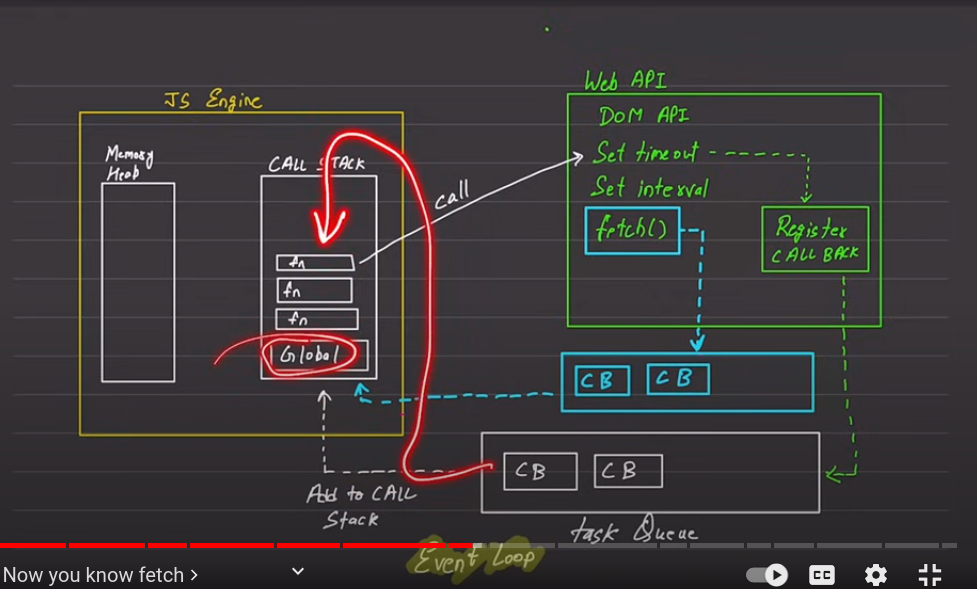 JS Engine
Memory
Heap
CALL STACK
fn
fn
fn
Global
call
Web API
DOM API
Set timeout
Set interval
fetch()
Register
CALL BACK
CB CB
CB CB
Add to CALL
Stack
task Queue
Event Loop
Now you know fetch >
CC